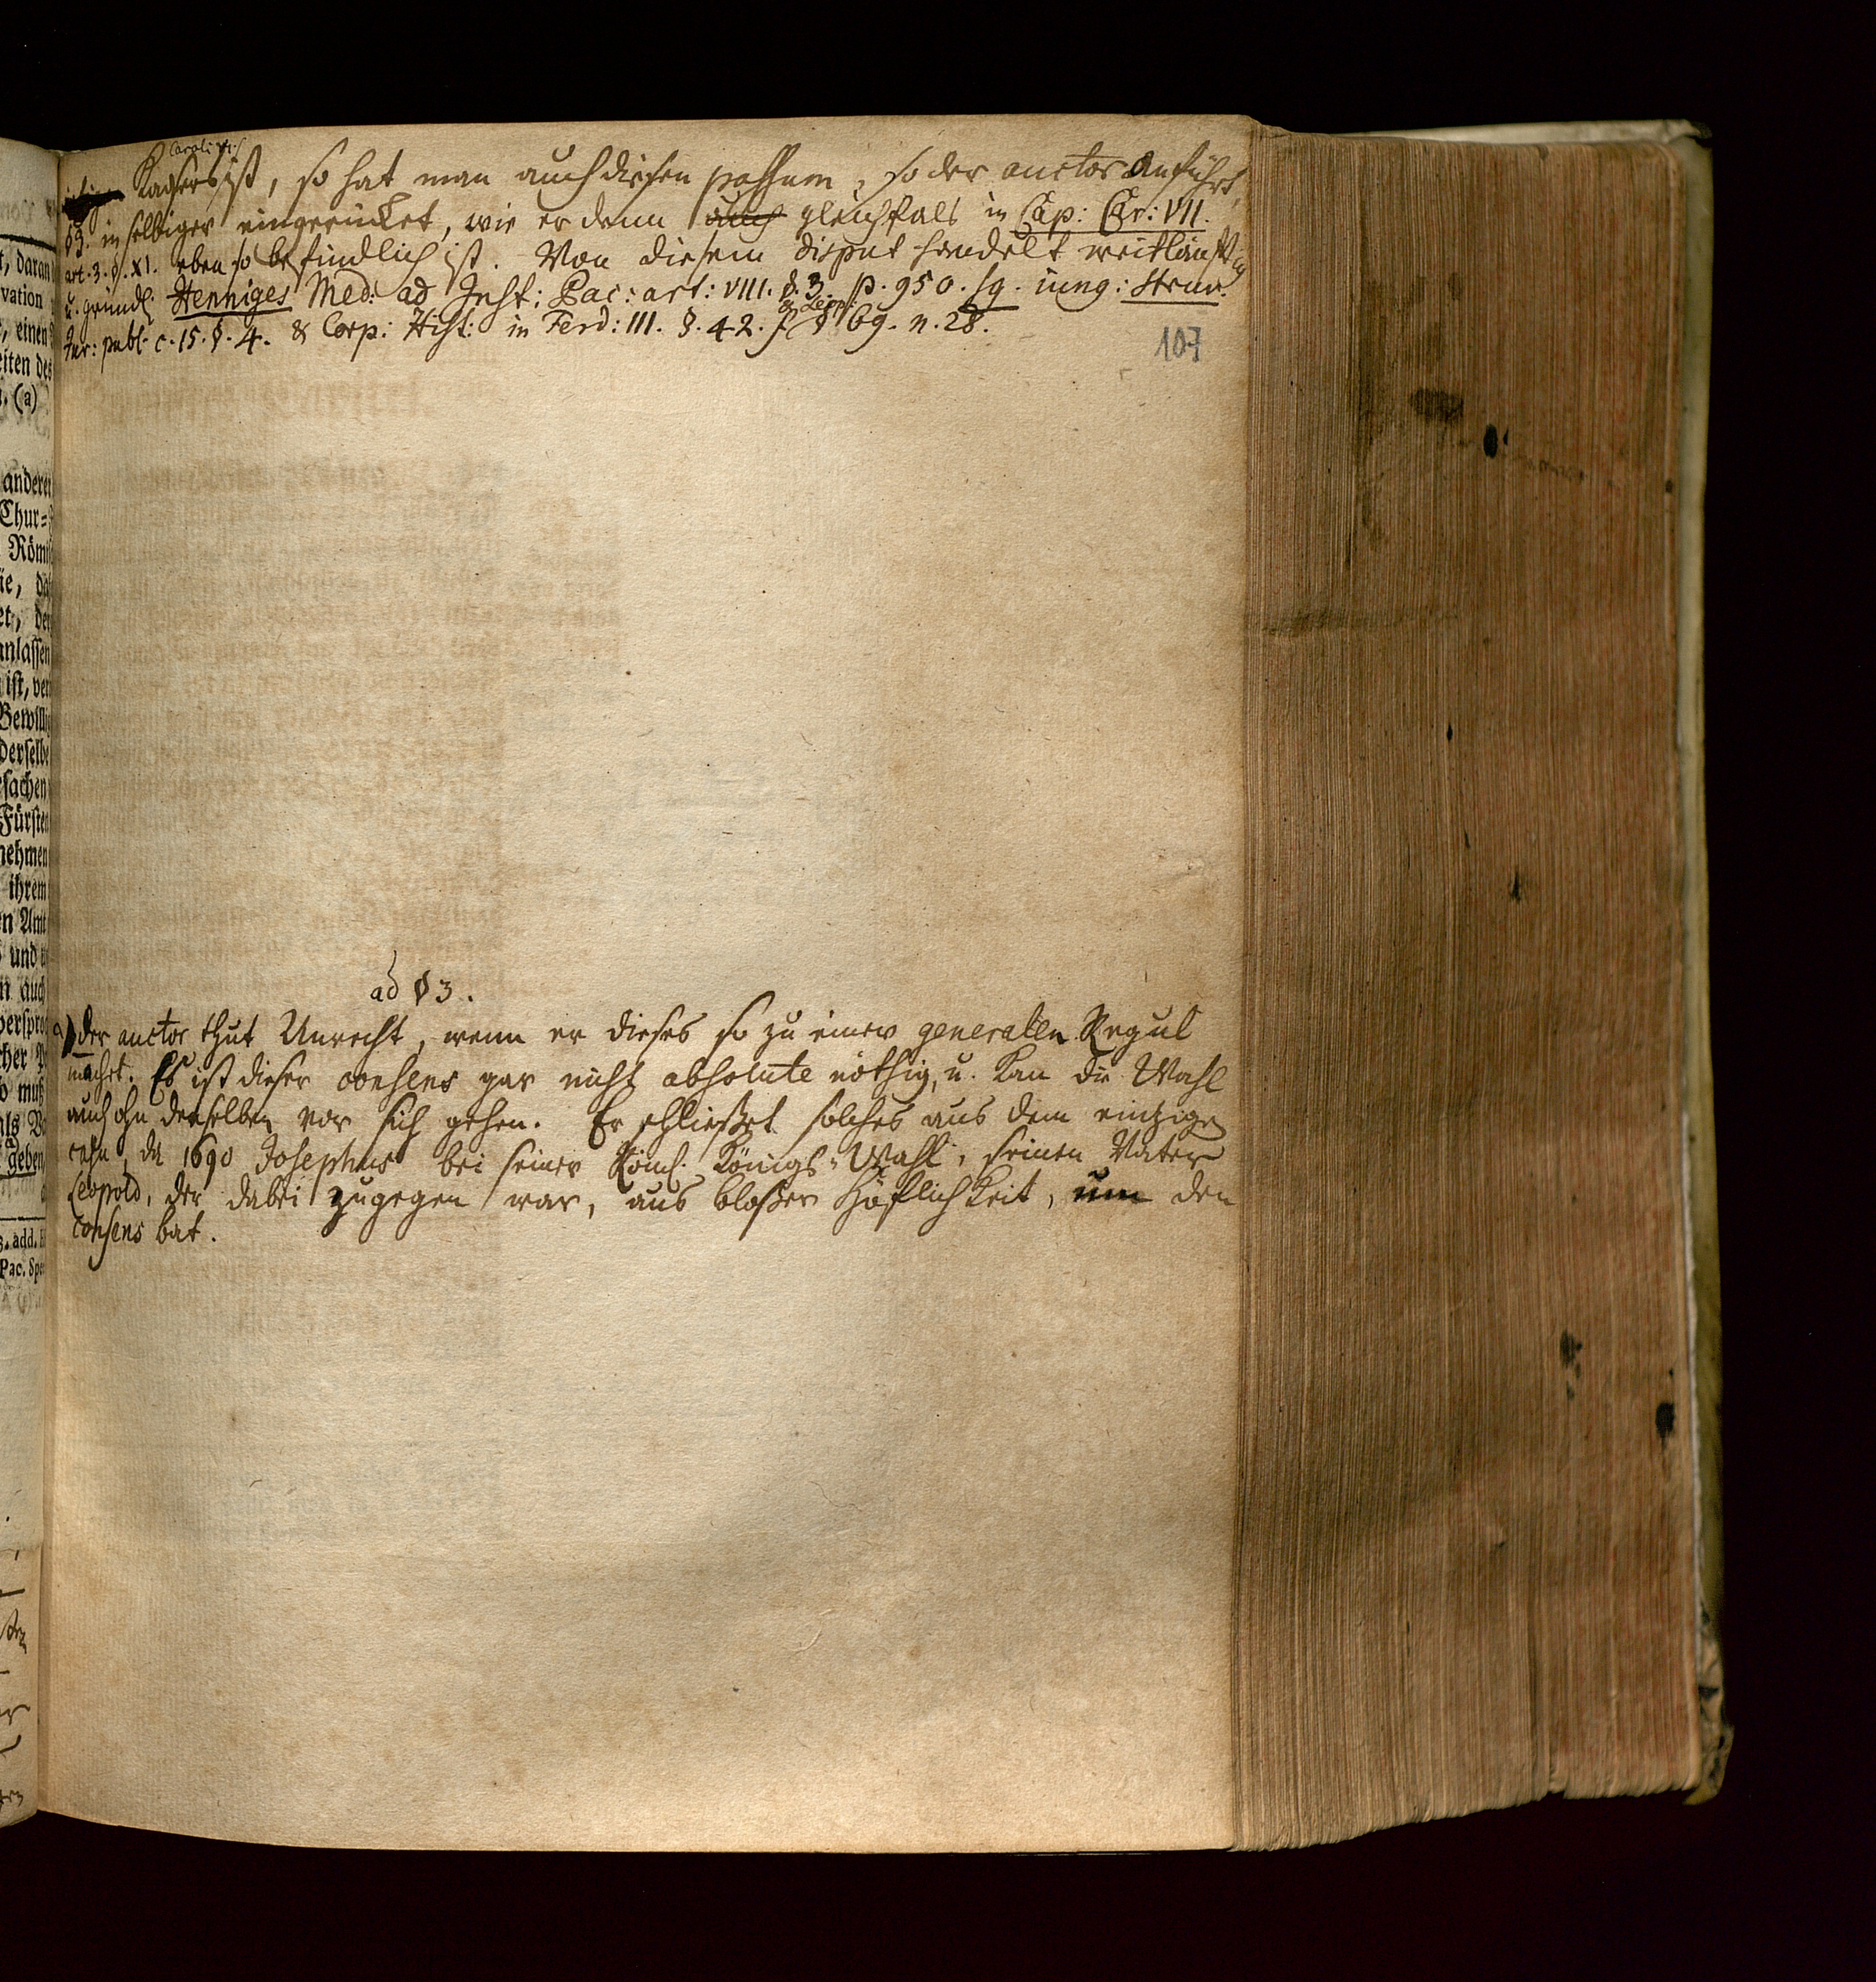 Caroli VI.
Kaysers ist, so hat man auch diesen passum, so der auctor anführt,
§3. in selbiger eingerücket, wie er denn auch gleichfals in Cap: Car: VII.
art. 3. §. XI. eben so befindlich ist. Von diesem disput handelt weitläuftig
u. gründl: Henniges Med: ad Inst: Pac: art: VIII. §. 3. p. 950. sq. iung: Struv.
Jur: publ. c. 15. §. 4. & Corp: Hist: in Ferd: III. §. 42. & Leop: § 69. n. 28.
107
ad § 3.
a) der auctor thut Unrecht, wenn er dieses so zu einer generalen Regul
machet. Es ist dieser consens gar nicht absolute nöthig, u. kan die Wahl
auch ohn denselben vor sich gehen. Er schließet solches aus dem eintzigen
casu, da 1690 Josephus bei seiner Römisch. Königs-Wahl, seinen Vater
Leopold, der dabei zugegen war, aus bloßer Höflichkeit, um den
consens bat.
t, daran
vation
, einen
eiten des
. (a)
anderer
Chur=
Röm
ie, da
et, der
anlassen
ist, ver
Bewilli
derselbe
sachen
Fürsten
nehmen
ihrem
en Amt
und
n auch
verspro
cher
o muß
als
geben
. add.
Pac. Spe